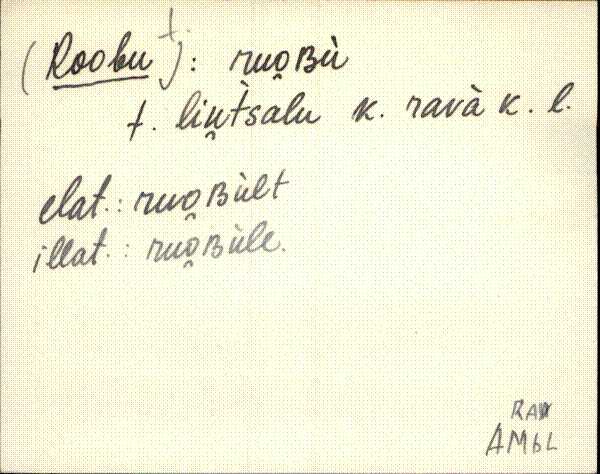 (Roobu t.): ruo̯ʙù
t. liṇ̀tsalu k. ravà k. l.
elat.: ruo̯ʙùlt
illat.: ruo̯ʙùle.
RAV
AMBL